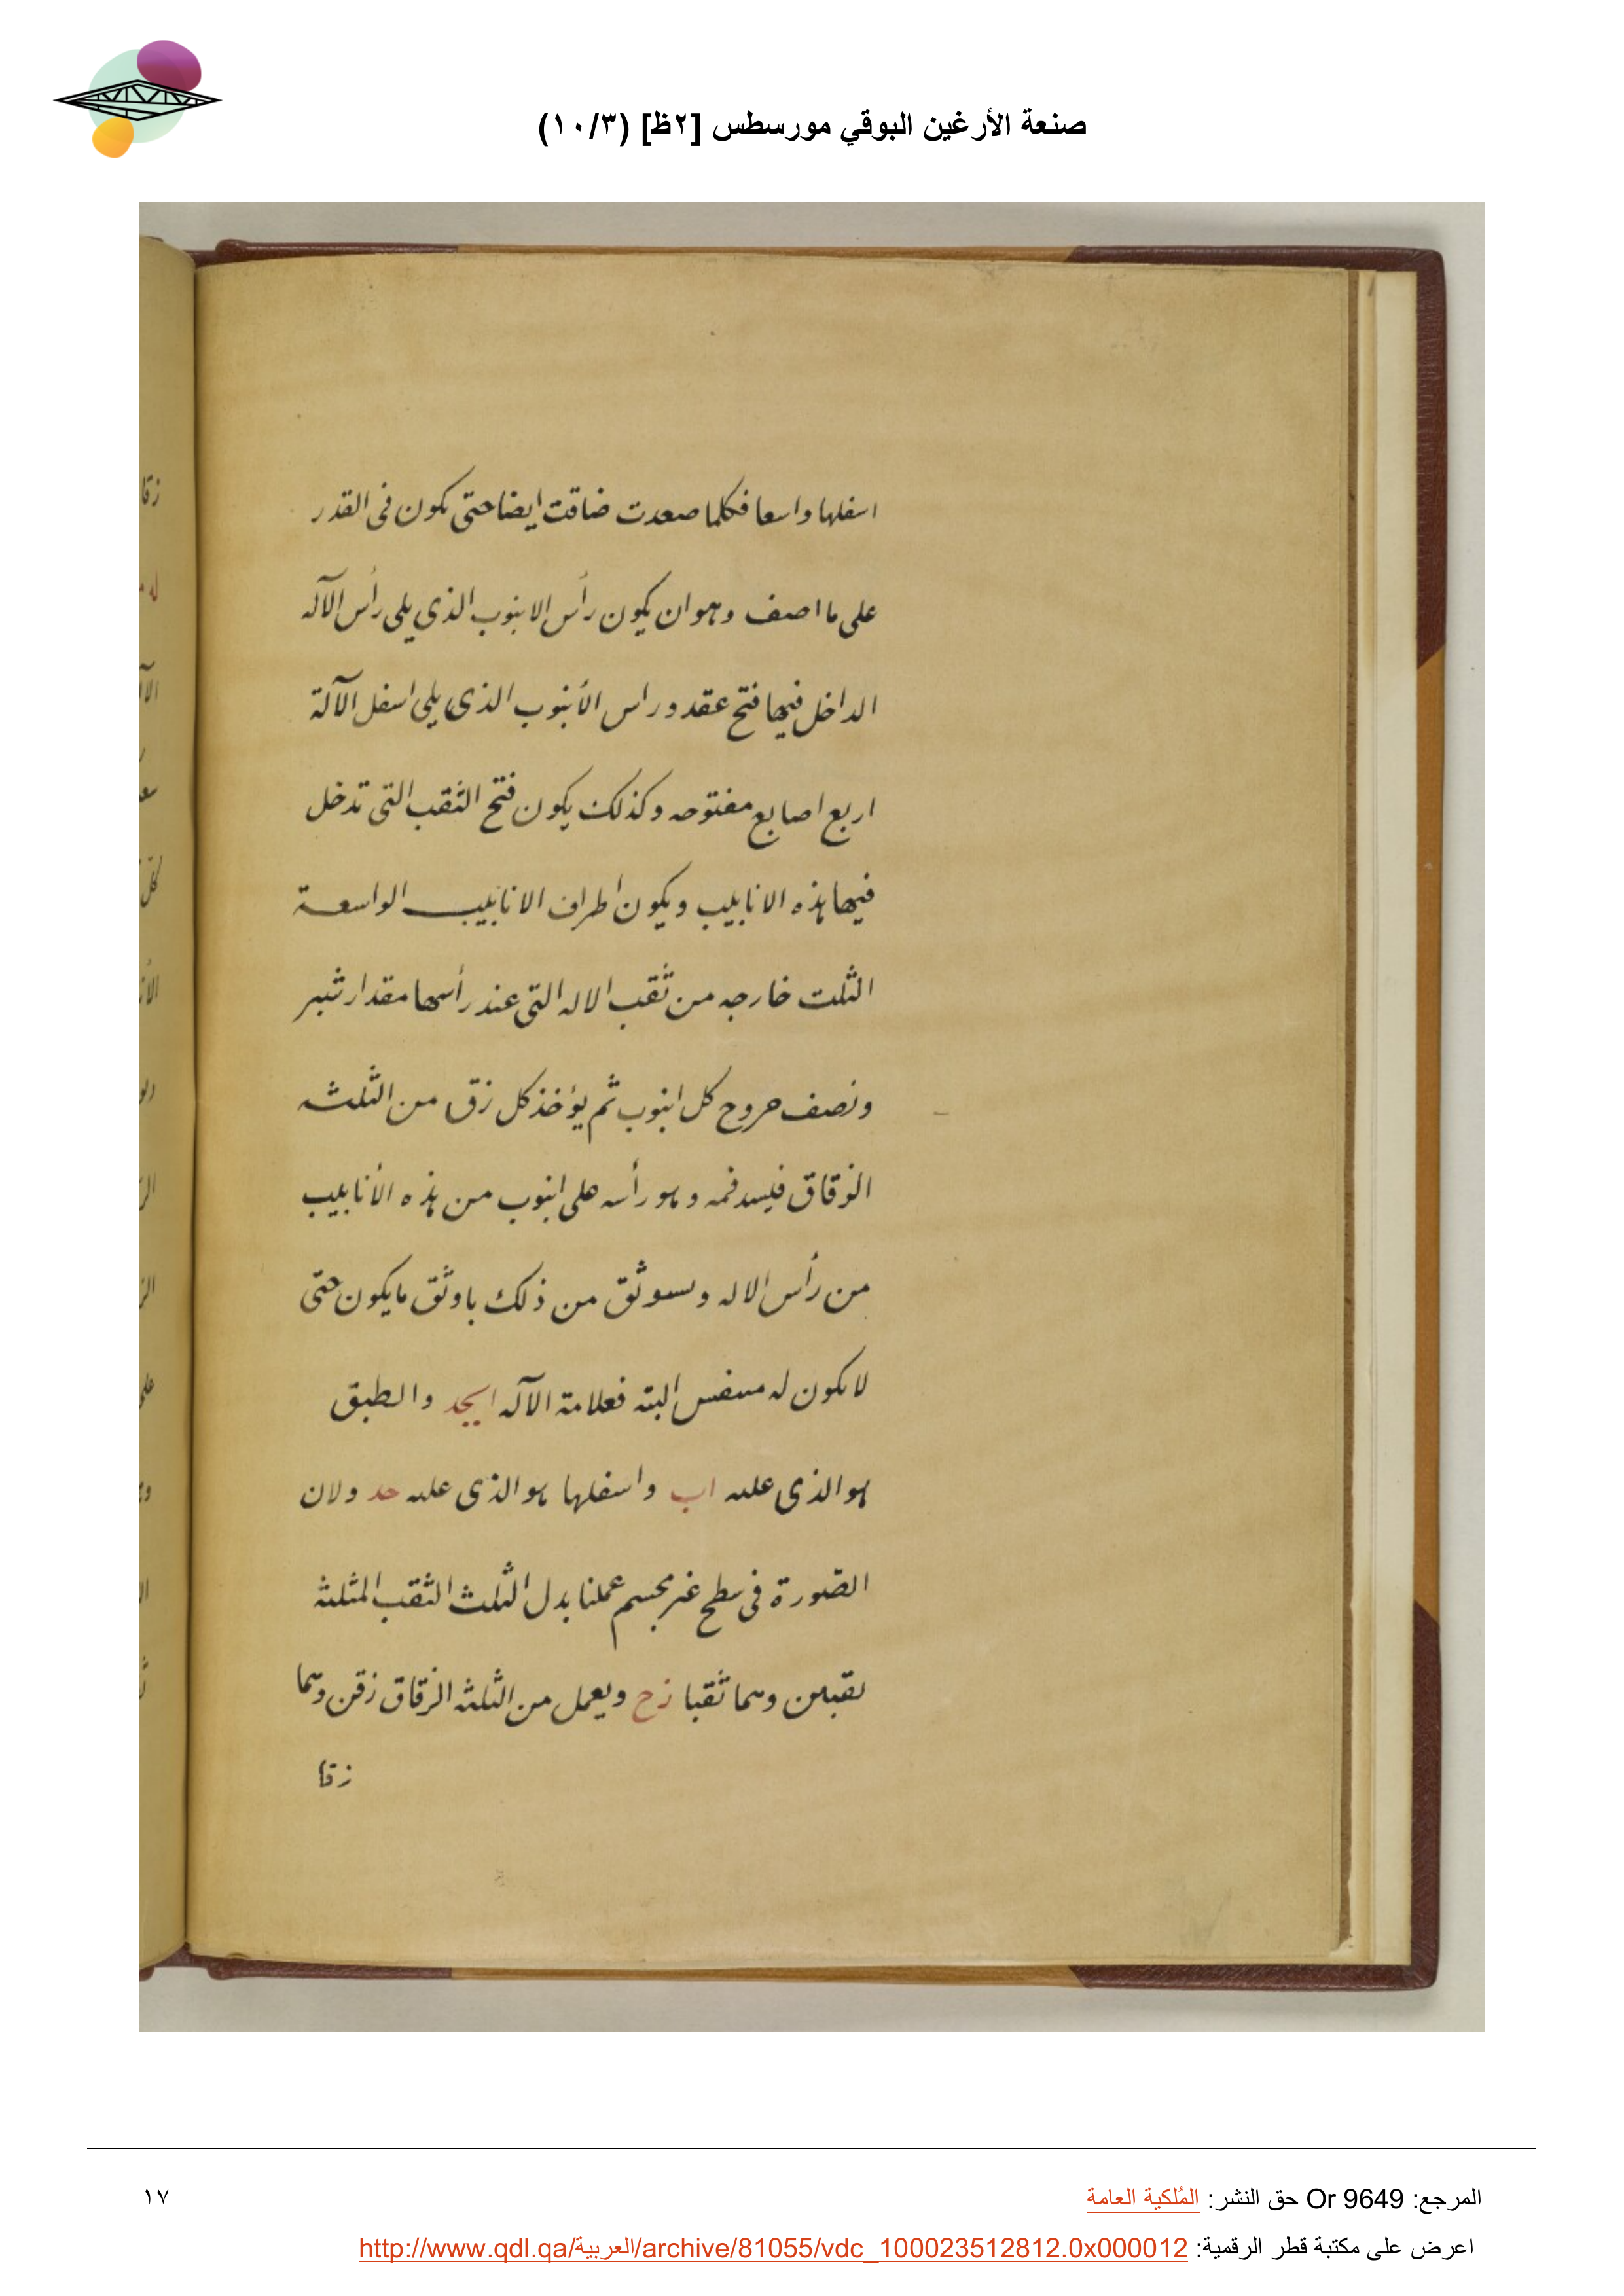 صنعة الأرغين البوقي مورسطس [٢ظ] (١٠/٣)
اسفلها واسعا فكلما صعدت ضاقت ايضا حتى يكون فى القدر
على ما اصف وهو ان يكون رأس الابنوب الذى يلى رأس الآله
الداخل فيها فتح عقد وراس الأنبوب الذى يلى اسفل الآلة
اربع اصابع مفتوحه وكذلك يكون فتح الثقب التى تدخل
فيها هذه الانابيب ويكون اطراف الانابيب الواسعة
الثلث خارجه من ثقب الاله التى عند رأسها مقدار شبر
ونصف خروج كل انبوب ثم يؤخذ كل زق من الثلثه
الزقاق فيسد فمه وهو رأسه على انبوب من هذه الأنابيب
من رأس الاله ويستوثق من ذلك باوثق ما يكون حتى
لا يكون له متنفس البته فعلامة الآله ابجد والطبق
هو الذى عليه اب واسفلها هو الذى عليه جد ولان
الصّورة فى سطح غير مجسم عملنا بدل الثلث الثقب المثلثة
ثقبين وهما ثقبا زح ويعمل من الثلثه الزقاق زقين وهما
زقا
المرجع: Or 9649 حق النشر: المُلكية العامة
١٧
اعرض على مكتبة قطر الرقمية: http://www.qdl.qa/العربية/archive/81055/vdc_100023512812.0x000012